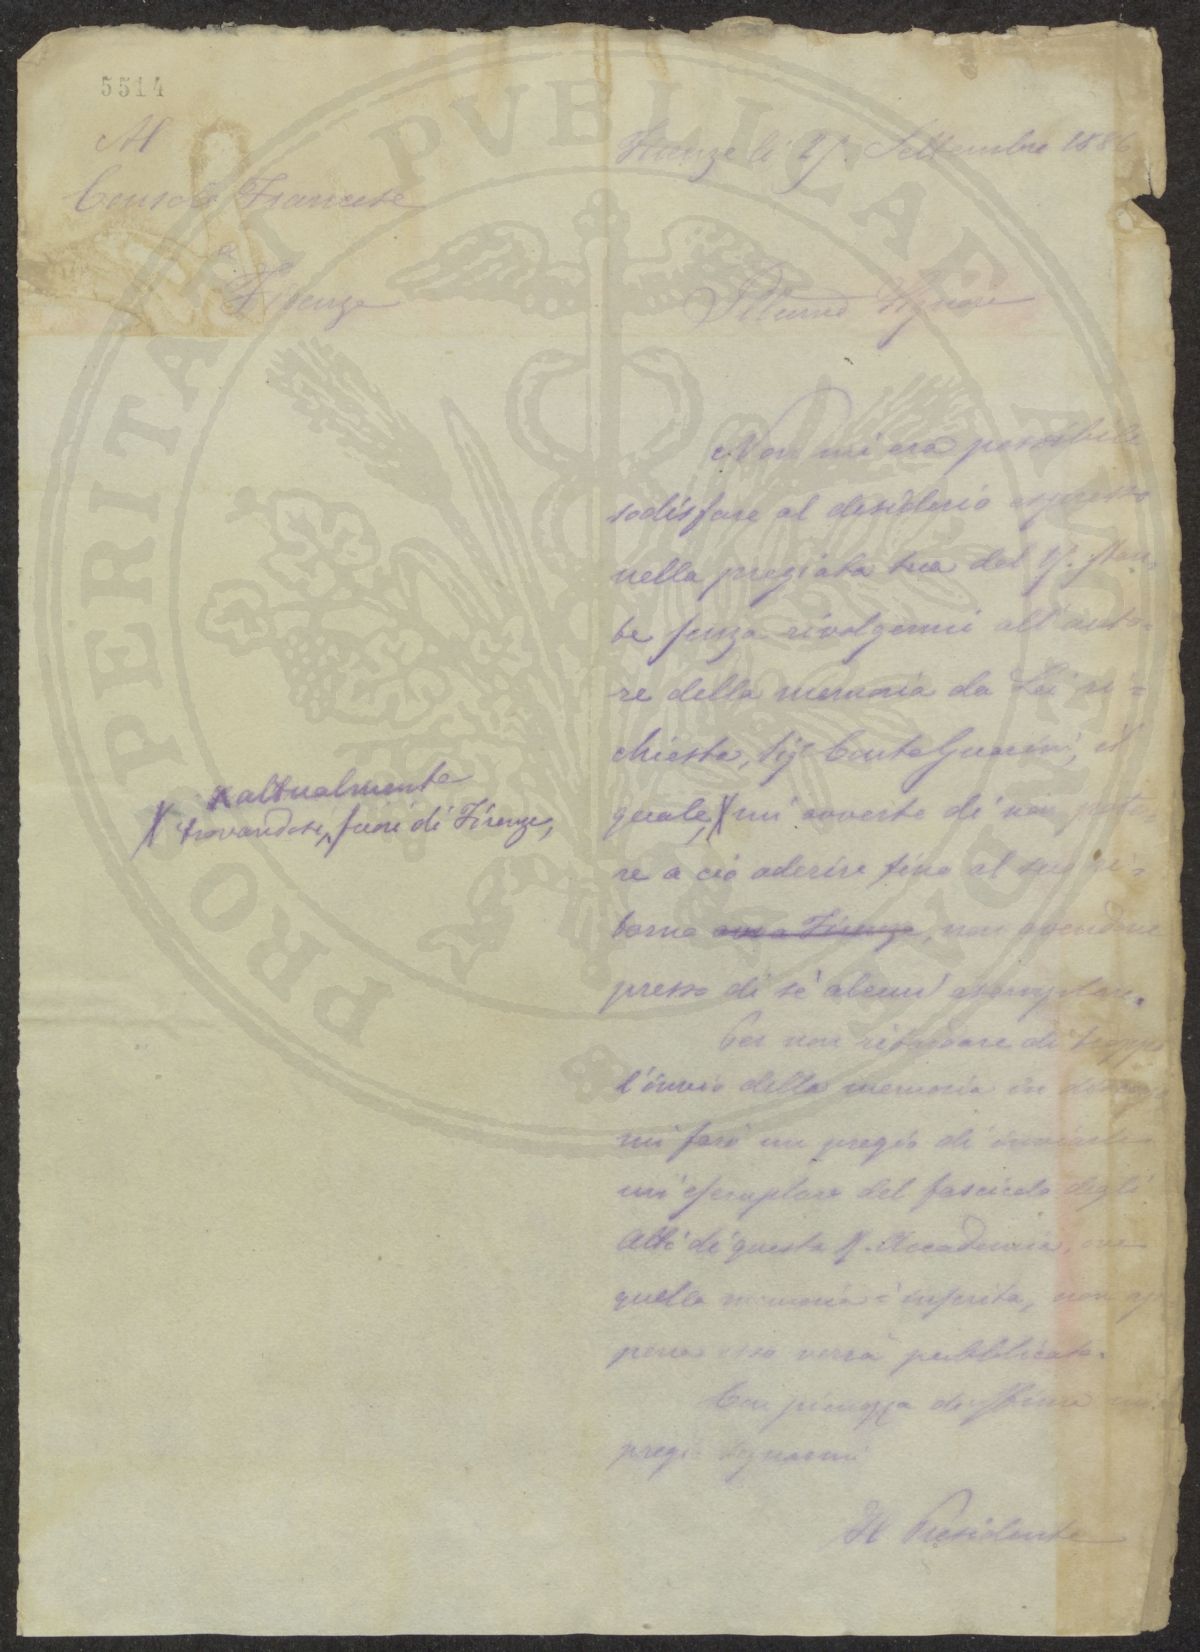 5514
Al
Console Francese
Firenze
Firenze li 27. Settembre 1886
Illumo Signore
Non mi era possibile
sodisfare al desiderio espresso
nella pregiata sua del
te senza rivolgermi all'auto-
re della memoria da Lei ri=
chiesta, Sigr Conte Guarini, il
quale, X mi avverte di non pote-
re a ciò aderire fino al suo ri-
torno, non avendone
presso di sè alcun esemplare.
X attualmente
X trovandosi fuori di Firenze,
Per non ritardare di troppo
l'invio della memoria in
mi farò un pregio di inviarle
un esemplare del fascicolo degli
Atti di questa R. Accademia, ove
quella memoria è inserita, non ap
pena esso verrà pubblicato.
Con pienezza di stima mi
pregio segnarmi
Il Presidente
PROSPERITATI PVBLICAE AVGENDAE